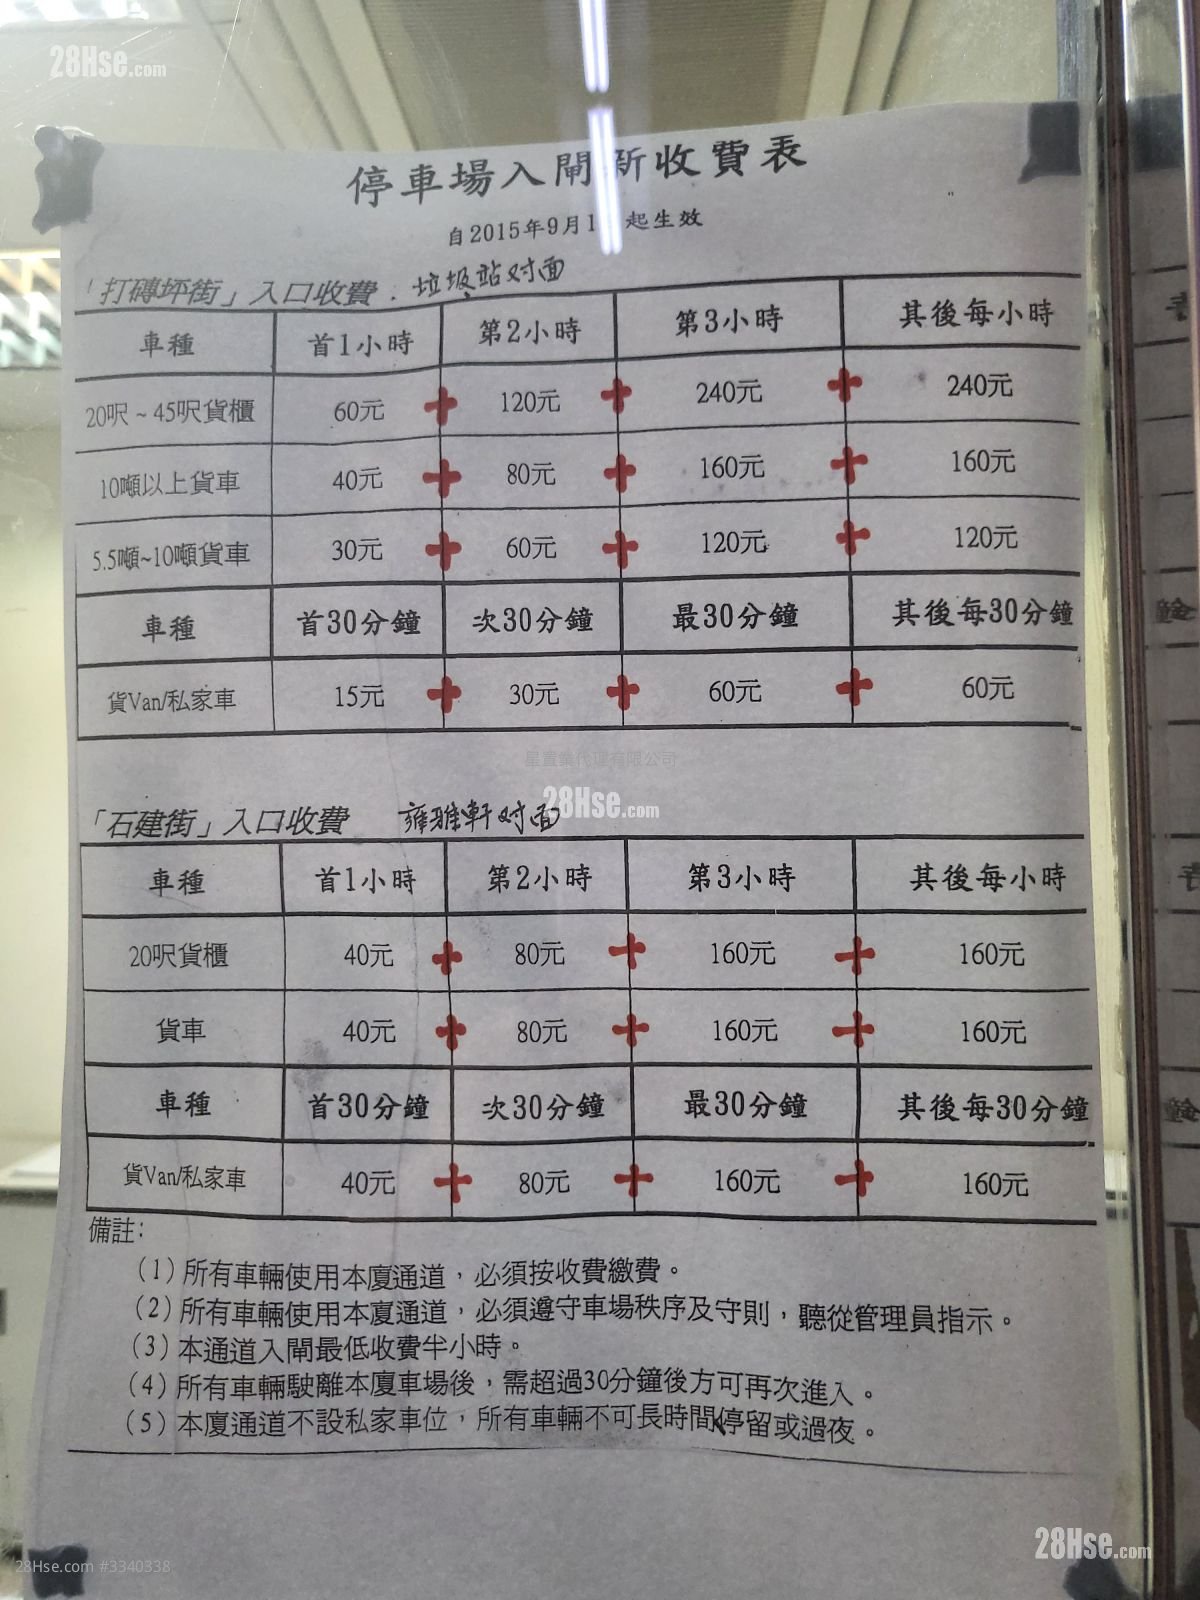 28Hse.com
停車場入閘新收費表
自2015年9月1 起生效
「打磚坪街」入口收費. 垃圾站对面
車種 首1小時 第2小時 第3小時 其後每小時
20呎~45呎貨櫃 60元 + 120元 + 240元 + 240元
10噸以上貨車 40元 + 80元 + 160元 + 160元
5.5噸~10噸貨車 30元 + 60元 + 120元 + 120元
車種 首30分鐘 次30分鐘 最30分鐘 其後每30分鐘
貨Van/私家車 15元 + 30元 + 60元 + 60元
星置業代理有限公司
28Hse.com
「石建街」入口收費 雍雅軒对面
車種 首1小時 第2小時 第3小時 其後每小時
20呎貨櫃 40元 + 80元 + 160元 + 160元
貨車 40元 + 80元 + 160元 + 160元
車種 首30分鐘 次30分鐘 最30分鐘 其後每30分鐘
貨Van/私家車 40元 + 80元 + 160元 + 160元
備註:
(1)所有車輛使用本廈通道，必須按收費繳費。
(2)所有車輛使用本廈通道，必須遵守車場秩序及守則，聽從管理員指示。
(3)本通道入閘最低收費半小時。
(4)所有車輛駛離本廈車場後，需超過30分鐘後方可再次進入。
(5)本廈通道不設私家車位，所有車輛不可長時間停留或過夜。
28Hse.com
28Hse.com #3340338